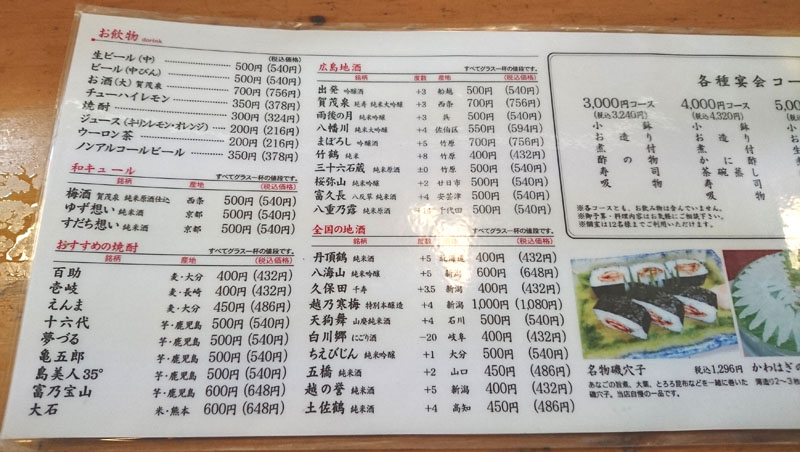 お飲物 dorink
(税込価格)
生ビール(中) 500円 (540円)
ビール(中びん) 500円 (540円)
お酒(大) 賀茂泉 700円 (756円)
チューハイレモン 350円 (378円)
焼酎 300円 (324円)
ジュース(キリンレモン・オレンジ) 200円 (216円)
ウーロン茶 200円 (216円)
ノンアルコールビール 350円 (378円)
和キュール すべてグラス一杯の値段です。
銘柄 産地 (税込価格)
梅酒 賀茂泉 純米原酒仕込 西条 500円 (540円)
ゆず想い 純米酒 京都 500円 (540円)
すだち想い 純米酒 京都 500円 (540円)
おすすめの焼酎 すべてグラス一杯の値段です。
銘柄 産地 (税込価格)
百助 麦・大分 400円 (432円)
壱岐 麦・長崎 400円 (432円)
えんま 麦・大分 450円 (486円)
十六代 芋・鹿児島 500円 (540円)
夢づる 芋・鹿児島 500円 (540円)
亀五郎 芋・鹿児島 500円 (540円)
島美人35° 芋・鹿児島 500円 (540円)
富乃宝山 芋・鹿児島 600円 (648円)
大石 米・熊本 600円 (648円)
広島地酒 すべてグラス一杯の値段です。
銘柄 度数 産地 (税込価格)
出発 吟醸酒 +3 船越 500円 (540円)
賀茂泉 純米大吟醸 +3 西条 700円 (756円)
雨後の月 純米吟醸 +3 呉 500円 (540円)
八幡川 純米大吟醸 +4 佐伯区 550円 (594円)
まぼろし 吟醸酒 +5 竹原 700円 (756円)
竹鶴 純米 +8 竹原 400円 (432円)
三十六石蔵 純米原酒 ±0 竹原 500円 (540円)
桜弥山 純米吟醸 +2 廿日市 500円 (540円)
富久長 八反草 純米吟醸 +4 安芸津 500円 (540円)
八重乃露 純米吟醸 千代田 500円 (540円)
全国の地酒 すべてグラス一杯の値段です。
銘柄 度数 産地 (税込価格)
丹頂鶴 純米酒 +5 北海道 400円 (432円)
八海山 純米吟醸 +5 新潟 600円 (648円)
久保田 千寿 +3.5 新潟 400円 (432円)
越乃寒梅 特別本醸造 +4 新潟 1,000円 (1,080円)
天狗舞 山廃純米酒 +4 石川 500円 (540円)
白川郷 にごり酒 -20 岐阜 400円 (432円)
ちえびじん 純米吟醸 +1 大分 500円 (540円)
五橋 純米酒 +2 山口 450円 (486円)
越の誉 純米酒 +5 新潟 400円 (432円)
土佐鶴 純米酒 +4 高知 450円 (486円)
各種宴会コー
3,000円コース
(税込3,240円)
小お酢寿
鉢造の
付物司物吸
4,000円コース
(税込4,320円)
5,0
※各コースとも、お飲み物は含んでいません。
※御予算・料理内容はお気軽にご相談下さい。
※個室は12名様までご利用いただけます。
名物磯穴子 税込1,296円
あなごの旨煮、大葉、とろろ昆布などを一緒に巻いた
磯穴子。当店自慢の一品です。
かわはぎの
薄造り2〜3